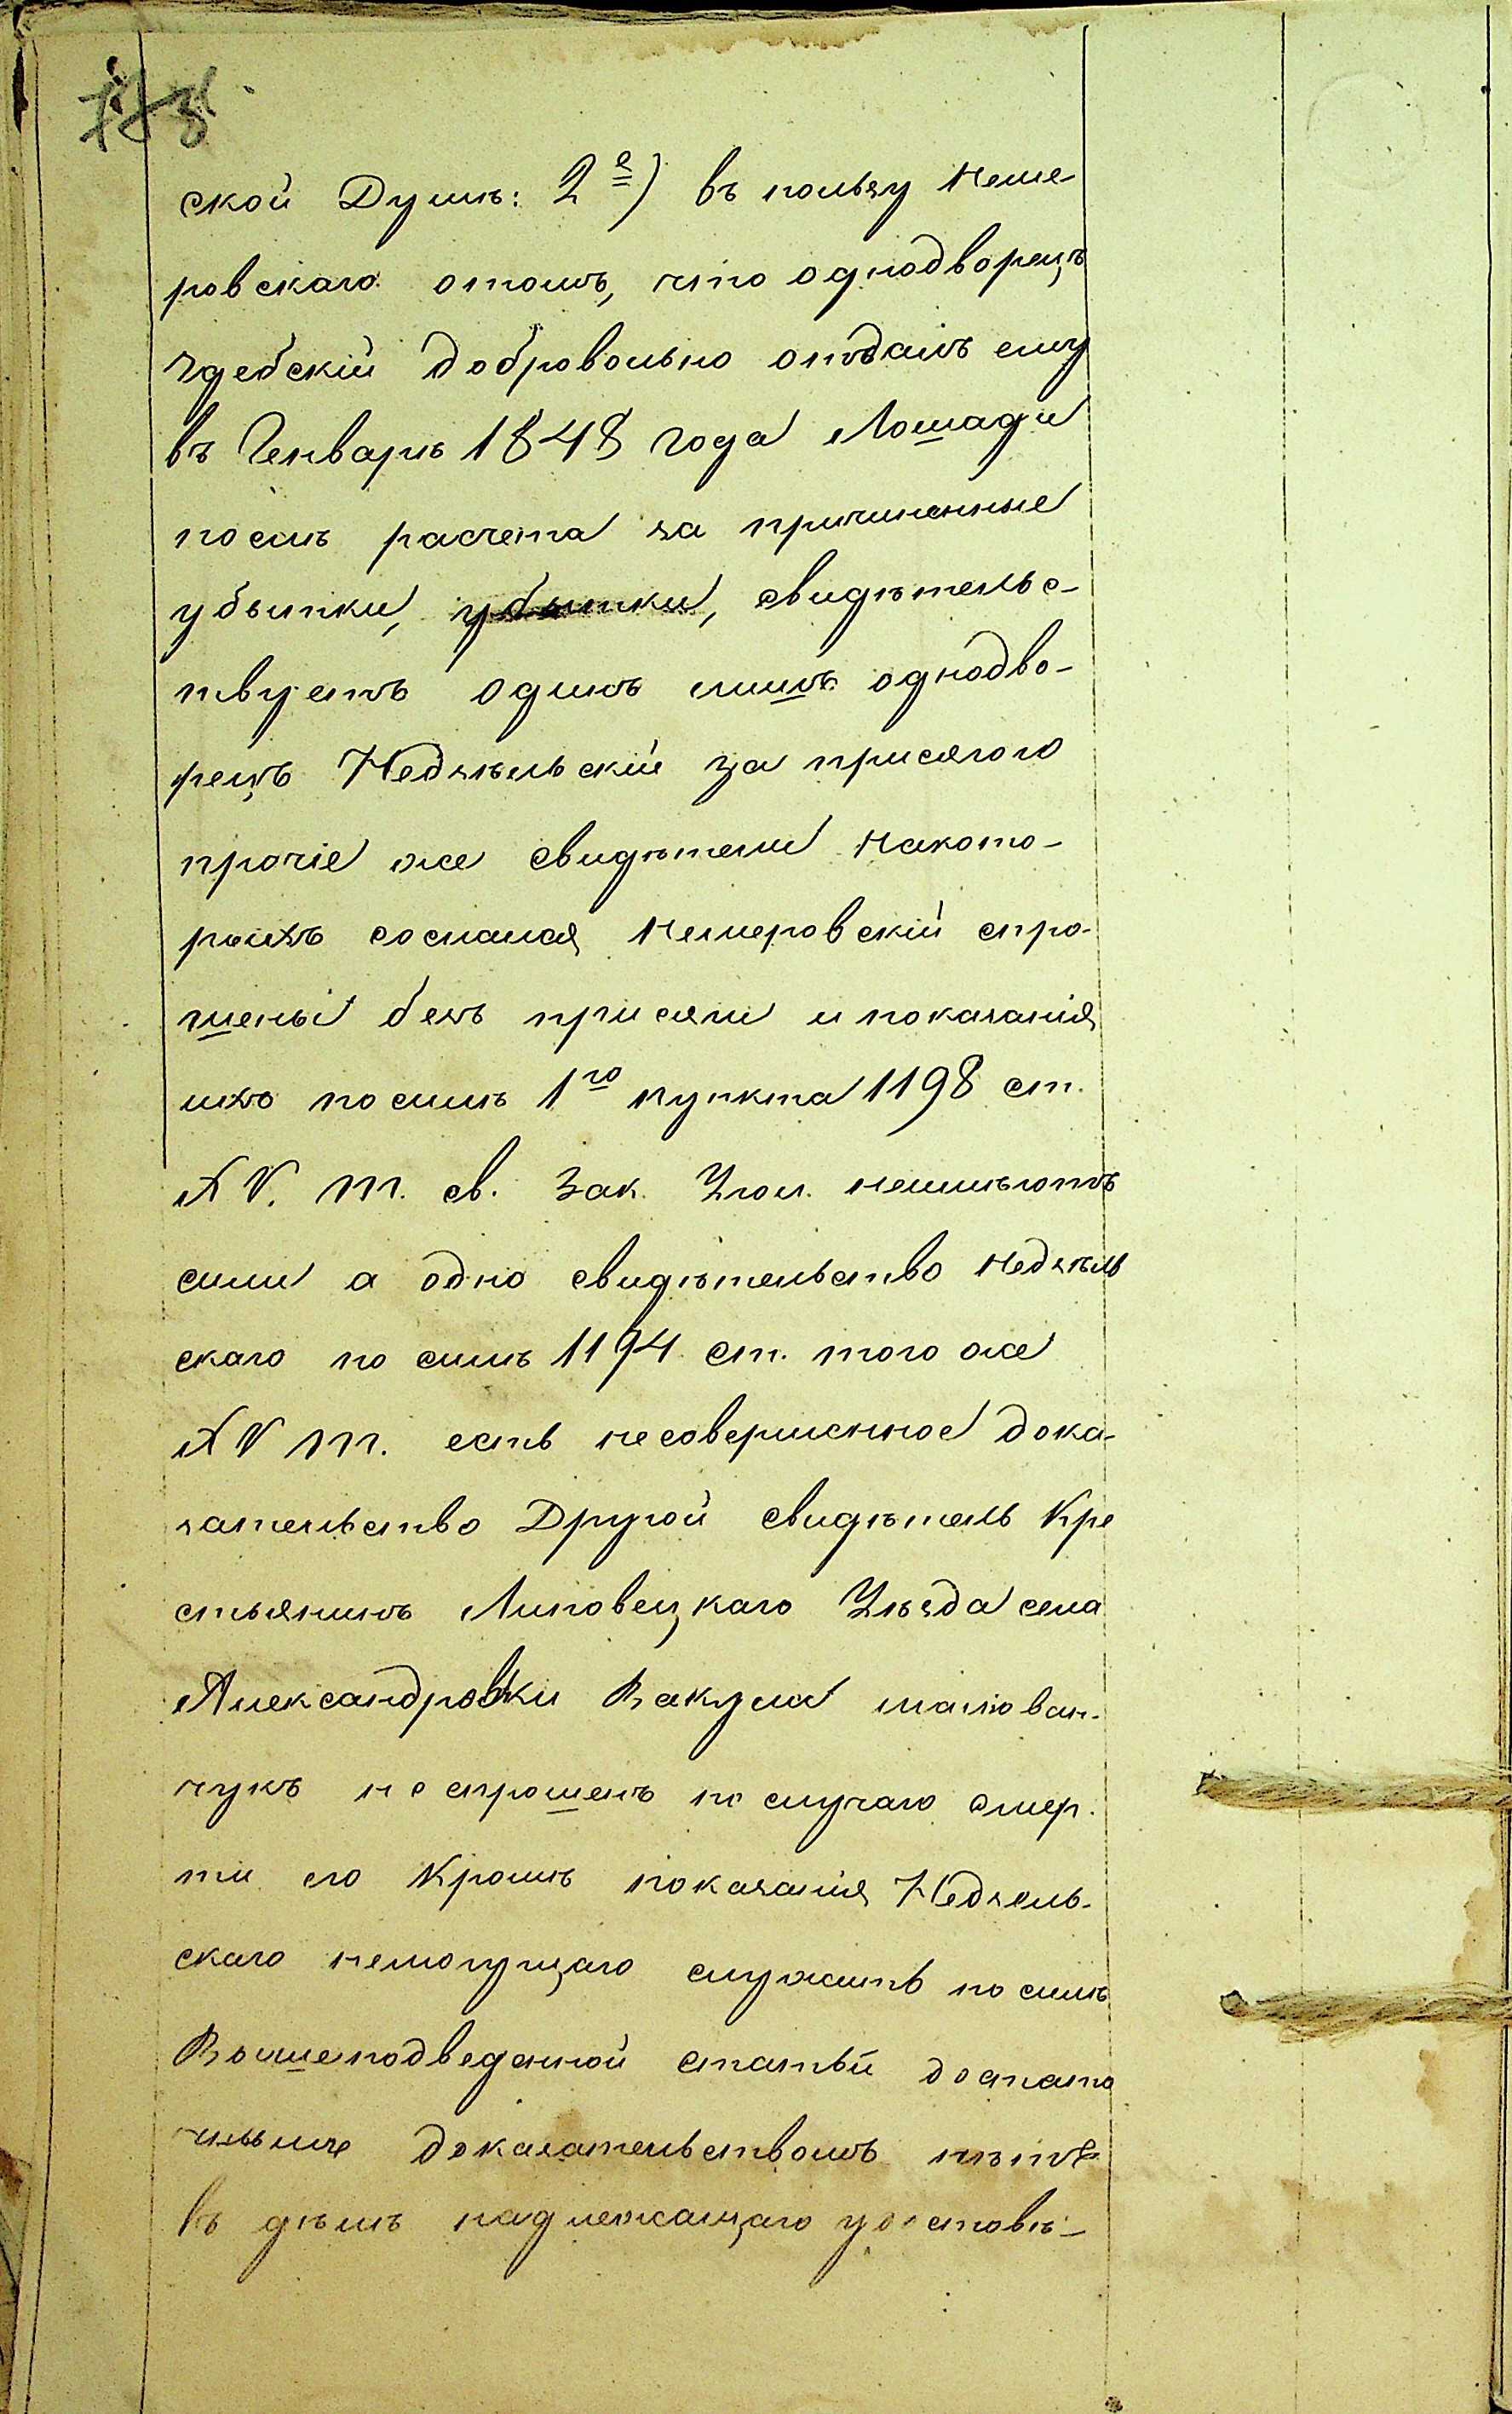 ской Душѣ: 2е) въ пользу Неме-
ровскаго отомъ, что однодворецъ
Здебскій добровольно отдалъ ему
въ Генварѣ 1848 года Лошади
послѣ расчета за причиненные
убытки, убытки, свидѣтельс-
твуетъ одинъ лишь однодво-
рецъ Недзѣльскій за присягою
прочіе же свидѣтели накото-
рыхъ сослался Немеровскій спро-
шены безъ присяги и показанія
ихъ по силѣ 1го пункта 1198 ст.
XV. т. св. Зак. Угол. неимѣютъ
силы а одно свидѣтельство Недзѣль
скаго по силѣ 1194 ст. того же
XV т. есть несовершенное дока-
зательство Другой свидѣтель Кре
стьянинъ Липовецкаго Уѣзда села
Александровки Вакула малюван-
чукъ не спрошенъ по случаю смер-
ти его Кромѣ показанія Недзель-
скаго немогущаго служить по силѣ
Вышеподведенной статьи достато
чнымъ доказательствомъ нѣтъ
въ дѣлѣ надлежащаго удостовѣ-